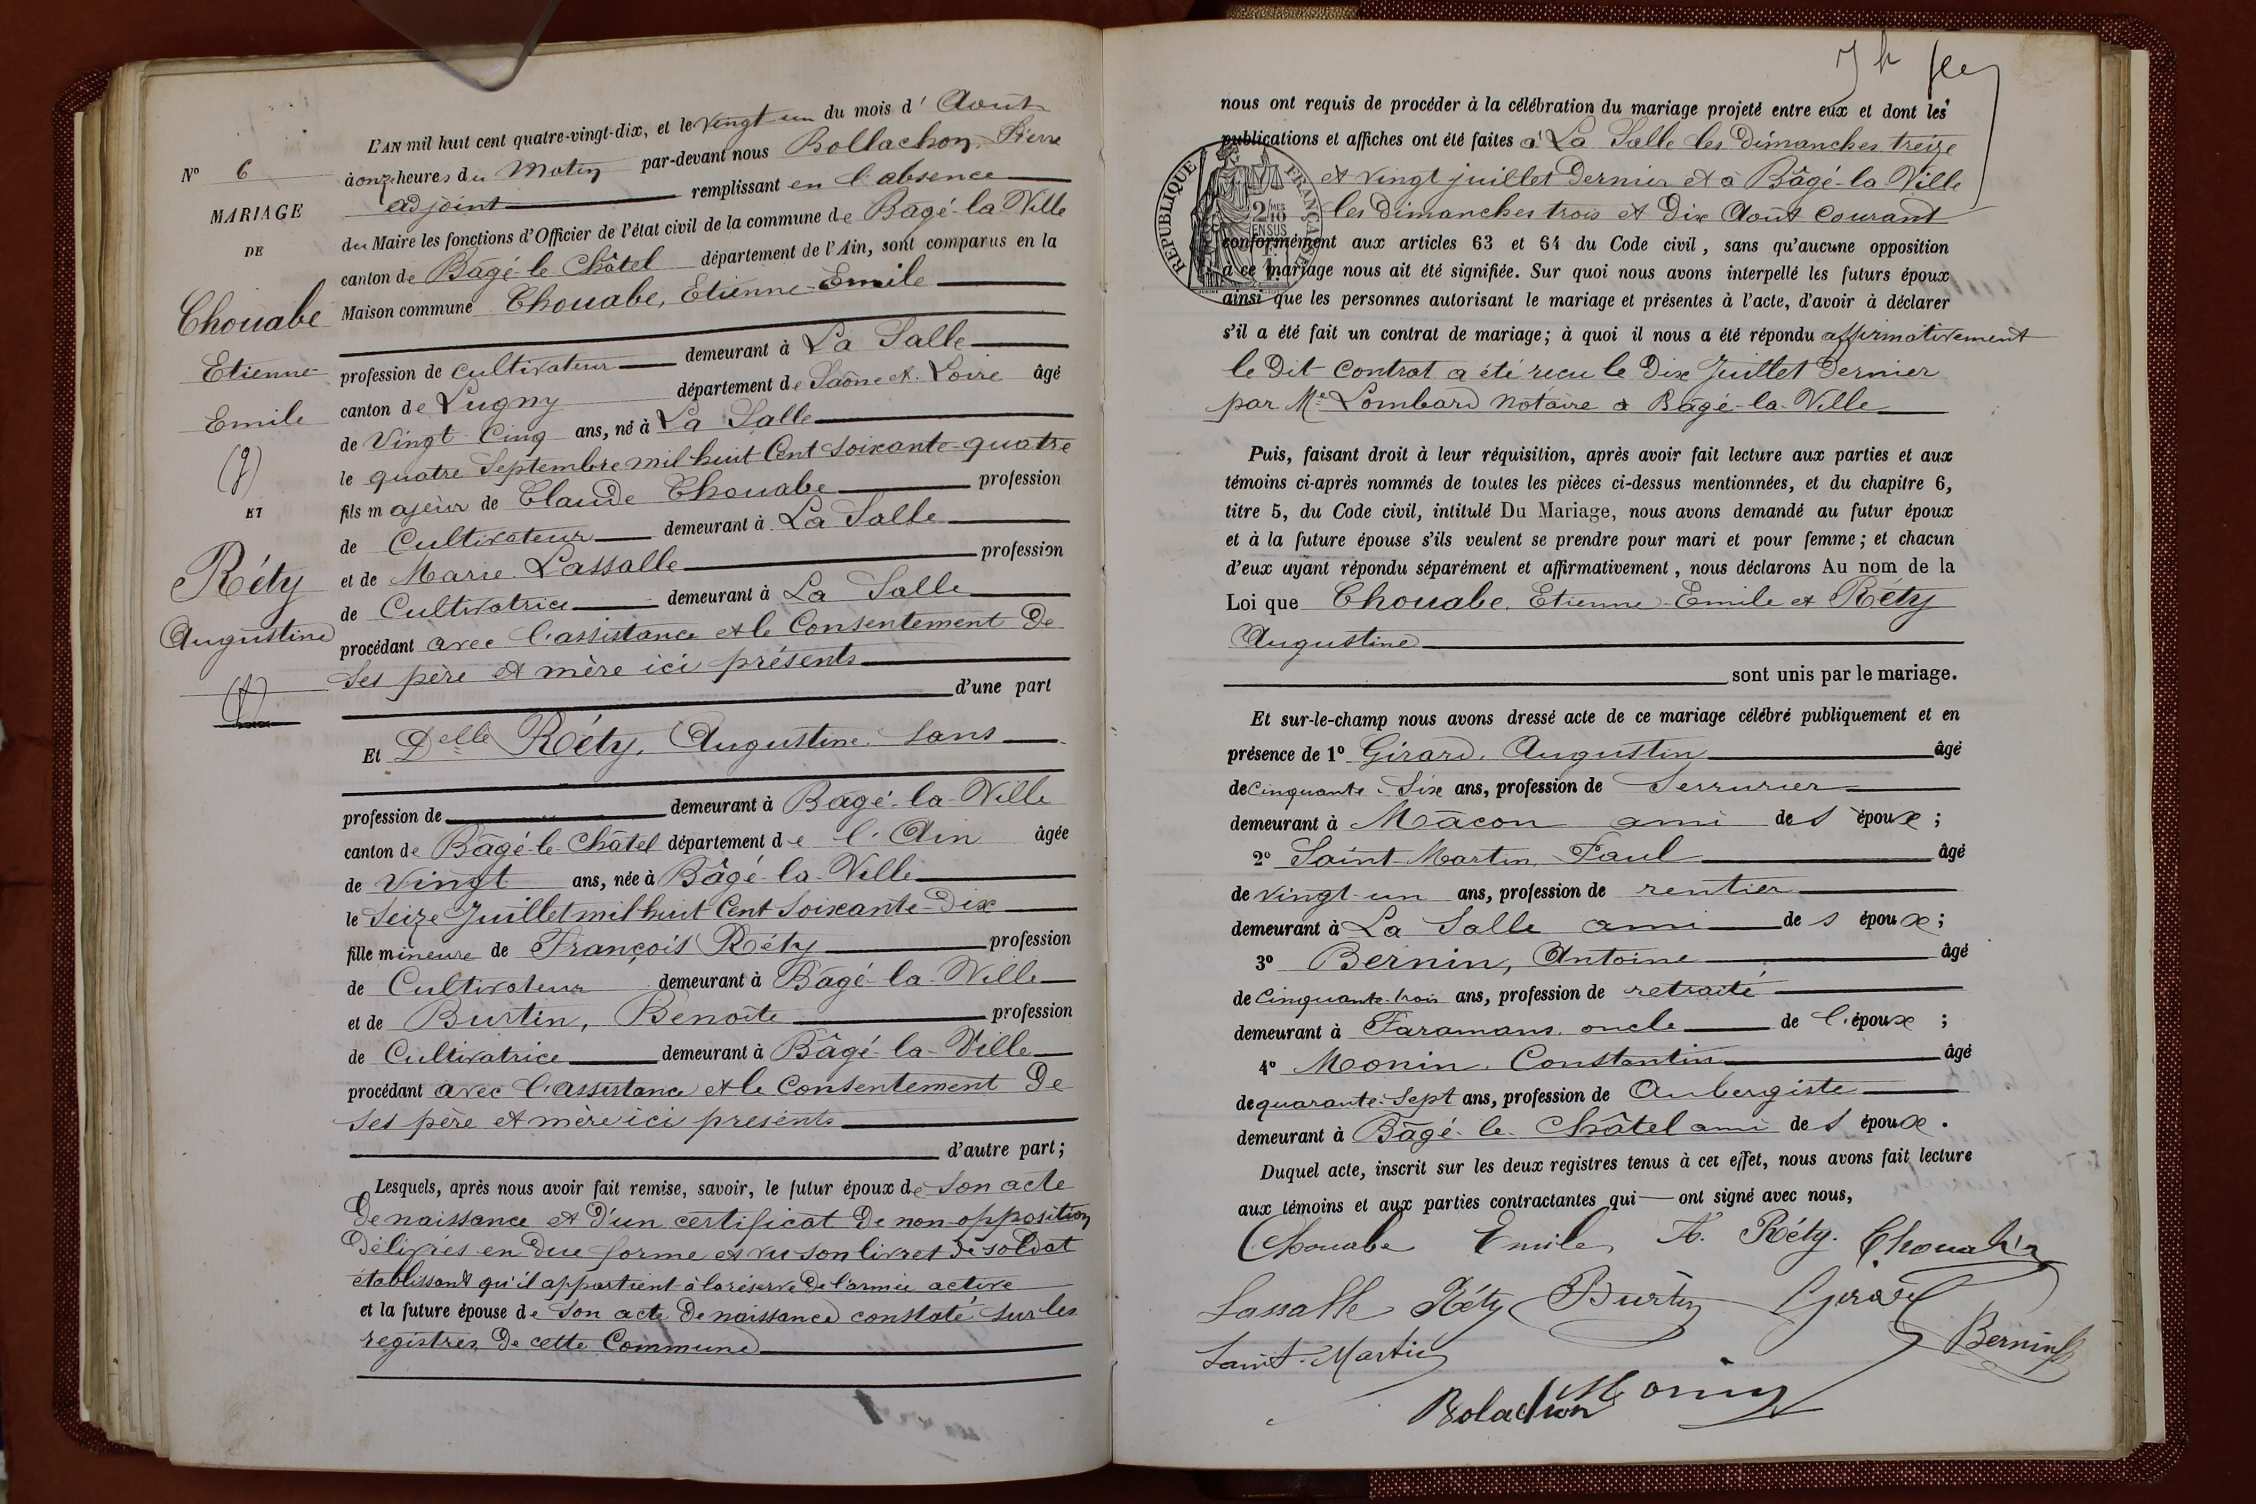 N° 6
MARIAGE
DE
Chouabe
Etienne
Emile
ET
Réty
Augustine
L'AN mil huit cent quatre-vingt-dix, et le vingt-un du mois d'Août
à onze heures du Matin par-devant nous Bollachon, Pierre
adjoint remplissant en l'absence
du Maire les fonctions d'Officier de l'état civil de la commune de Bâgé-la-Ville
canton de Bâgé-le-Châtel département de l'Ain, sont comparus en la
Maison commune Chouabe, Etienne-Emile
profession de cultivateur demeurant à La Salle
canton de Lugny département de Saône et Loire âgé
de Vingt Cinq ans, né à La Salle
le quatre Septembre mil huit Cent soixante-quatre
fils majeur de Claude Chouabe profession
de Cultivateur demeurant à La Salle
et de Marie Lassalle profession
de Cultivatrice demeurant à La Salle
procédant avec l'assistance et le Consentement De
Ses père et mère ici présents
d'une part
Et Delle Réty, Augustine, sans
profession de demeurant à Bâgé-la-Ville
canton de Bâgé-le-Châtel département de l'Ain âgée
de Vingt ans, née à Bâgé-la-Ville
le Seize Juillet mil huit Cent soixante-Dix
fille mineure de François Réty profession
de Cultivateur demeurant à Bâgé-la-Ville
et de Burtin, Benoîte profession
de Cultivatrice demeurant à Bâgé-la-Ville
procédant avec l'assistance et le Consentement De
Ses père et mère ici présents
d'autre part;
Lesquels, après nous avoir fait remise, savoir, le futur époux de son acte
De naissance et D'un certificat De non-opposition
Délivrés en Due forme et vu son livret De soldat
établissant qu'il appartient à la réserve De l'armée active
et la future épouse de son acte De naissance constaté sur les
registres De cette Commune
nous ont requis de procéder à la célébration du mariage projeté entre eux et dont les
publications et affiches ont été faites à La Salle les Dimanches treize
et vingt juillet Dernier et à Bâgé-la-Ville
les Dimanches trois et Dix Août Courant
conformément aux articles 63 et 64 du Code civil, sans qu'aucune opposition
à ce mariage nous ait été signifiée. Sur quoi nous avons interpellé les futurs époux
ainsi que les personnes autorisant le mariage et présentes à l'acte, d'avoir à déclarer
s'il a été fait un contrat de mariage; à quoi il nous a été répondu affirmativement
le Dit Contrat a été reçu le Dix Juillet Dernier
par Me Lombard Notaire à Bâgé-la-Ville
RÉPUBLIQUE FRANÇAISE
2/10 MES
EN SUS
Puis, faisant droit à leur réquisition, après avoir fait lecture aux parties et aux
témoins ci-après nommés de toutes les pièces ci-dessus mentionnées, et du chapitre 6,
titre 5, du Code civil, intitulé Du Mariage, nous avons demandé au futur époux
et à la future épouse s'ils veulent se prendre pour mari et pour femme; et chacun
d'eux ayant répondu séparément et affirmativement, nous déclarons Au nom de la
Loi que Chouabe, Etienne-Emile et Réty
Augustine
sont unis par le mariage.
Et sur-le-champ nous avons dressé acte de ce mariage célébré publiquement et en
présence de 1° Girard, Augustin âgé
de cinquante-Six ans, profession de Serrurier
demeurant à Mâcon ami des époux;
2° Saint-Martin, Paul âgé
de vingt-un ans, profession de rentier
demeurant à La Salle ami des époux;
3° Bernin, Antoine âgé
de Cinquante-trois ans, profession de retraité
demeurant à Faramans oncle de l'époux;
4° Monin, Constantin âgé
de quarante-Sept ans, profession de Aubergiste
demeurant à Bâgé-le-Châtel ami des époux.
Duquel acte, inscrit sur les deux registres tenus à cet effet, nous avons fait lecture
aux témoins et aux parties contractantes qui ont signé avec nous,
Chouabe Emile A. Réty. Chouabe
Lassalle Réty Burtin Girard
Saint-Martin Bernin
Bolachon Monin